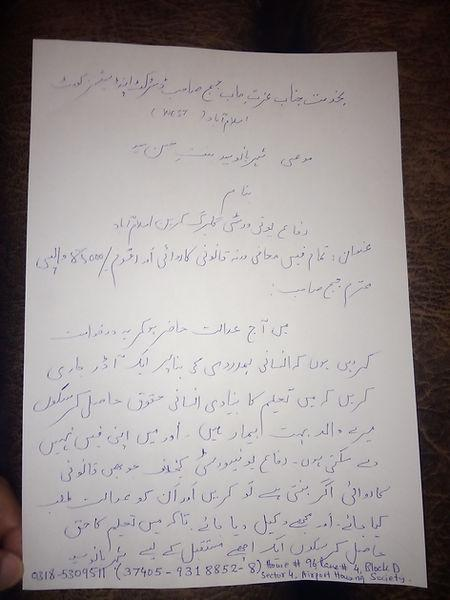 بخدمت جناب عزت مآب جج صاحب ڈسٹرکٹ اینڈ سیشن کورٹ
اسلام آباد (WEST)
مدعی شہر بانو سید بنت حسن سید
بنام
دفاع یونیورسٹی گلبرگ گرین اسلام آباد
عنوان: تمام فیس معافی ورنہ قانونی کاروائی اور رقوم /85000 واپسی
محترم جج صاحب:
میں آج عدالت حاضر ہو کر یہ درخواست
کرتی ہوں کہ انسانی ہمدردی کی بنا پر ایک آڈر جاری
کریں کہ میں تعلیم کا بنیادی انسانی حقوق حاصل کر سکوں
میرے والد بہت بیمار ہیں۔ اور میں اپنی فیس نہیں
دے سکتی ہوں۔ دفاع یونیورسٹی کے خلاف جو بھی قانونی
کاروائی اگر بنتی ہے تو کریں اور ان کو عدالت طلب
کیا جائے۔ اور مجھے وکیل دیا جائے۔ تاکہ میں تعلیم کا حق
حاصل کر سکوں ایک اچھے مستقبل کے لیے شہر بانو سید
0318-5309511 (37405-9318852-8) House # 96 Lane # 4, Block D
Sector 4, Airport Housing Society.